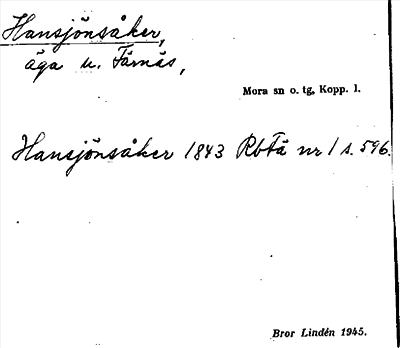 Hansjönsåker,
äga u. Färnäs,
Mora sn o. tg, Kopp. l.
Hansjönsåker 1843 RbFä nr 1 s. 596.
Bror Lindén 1945.